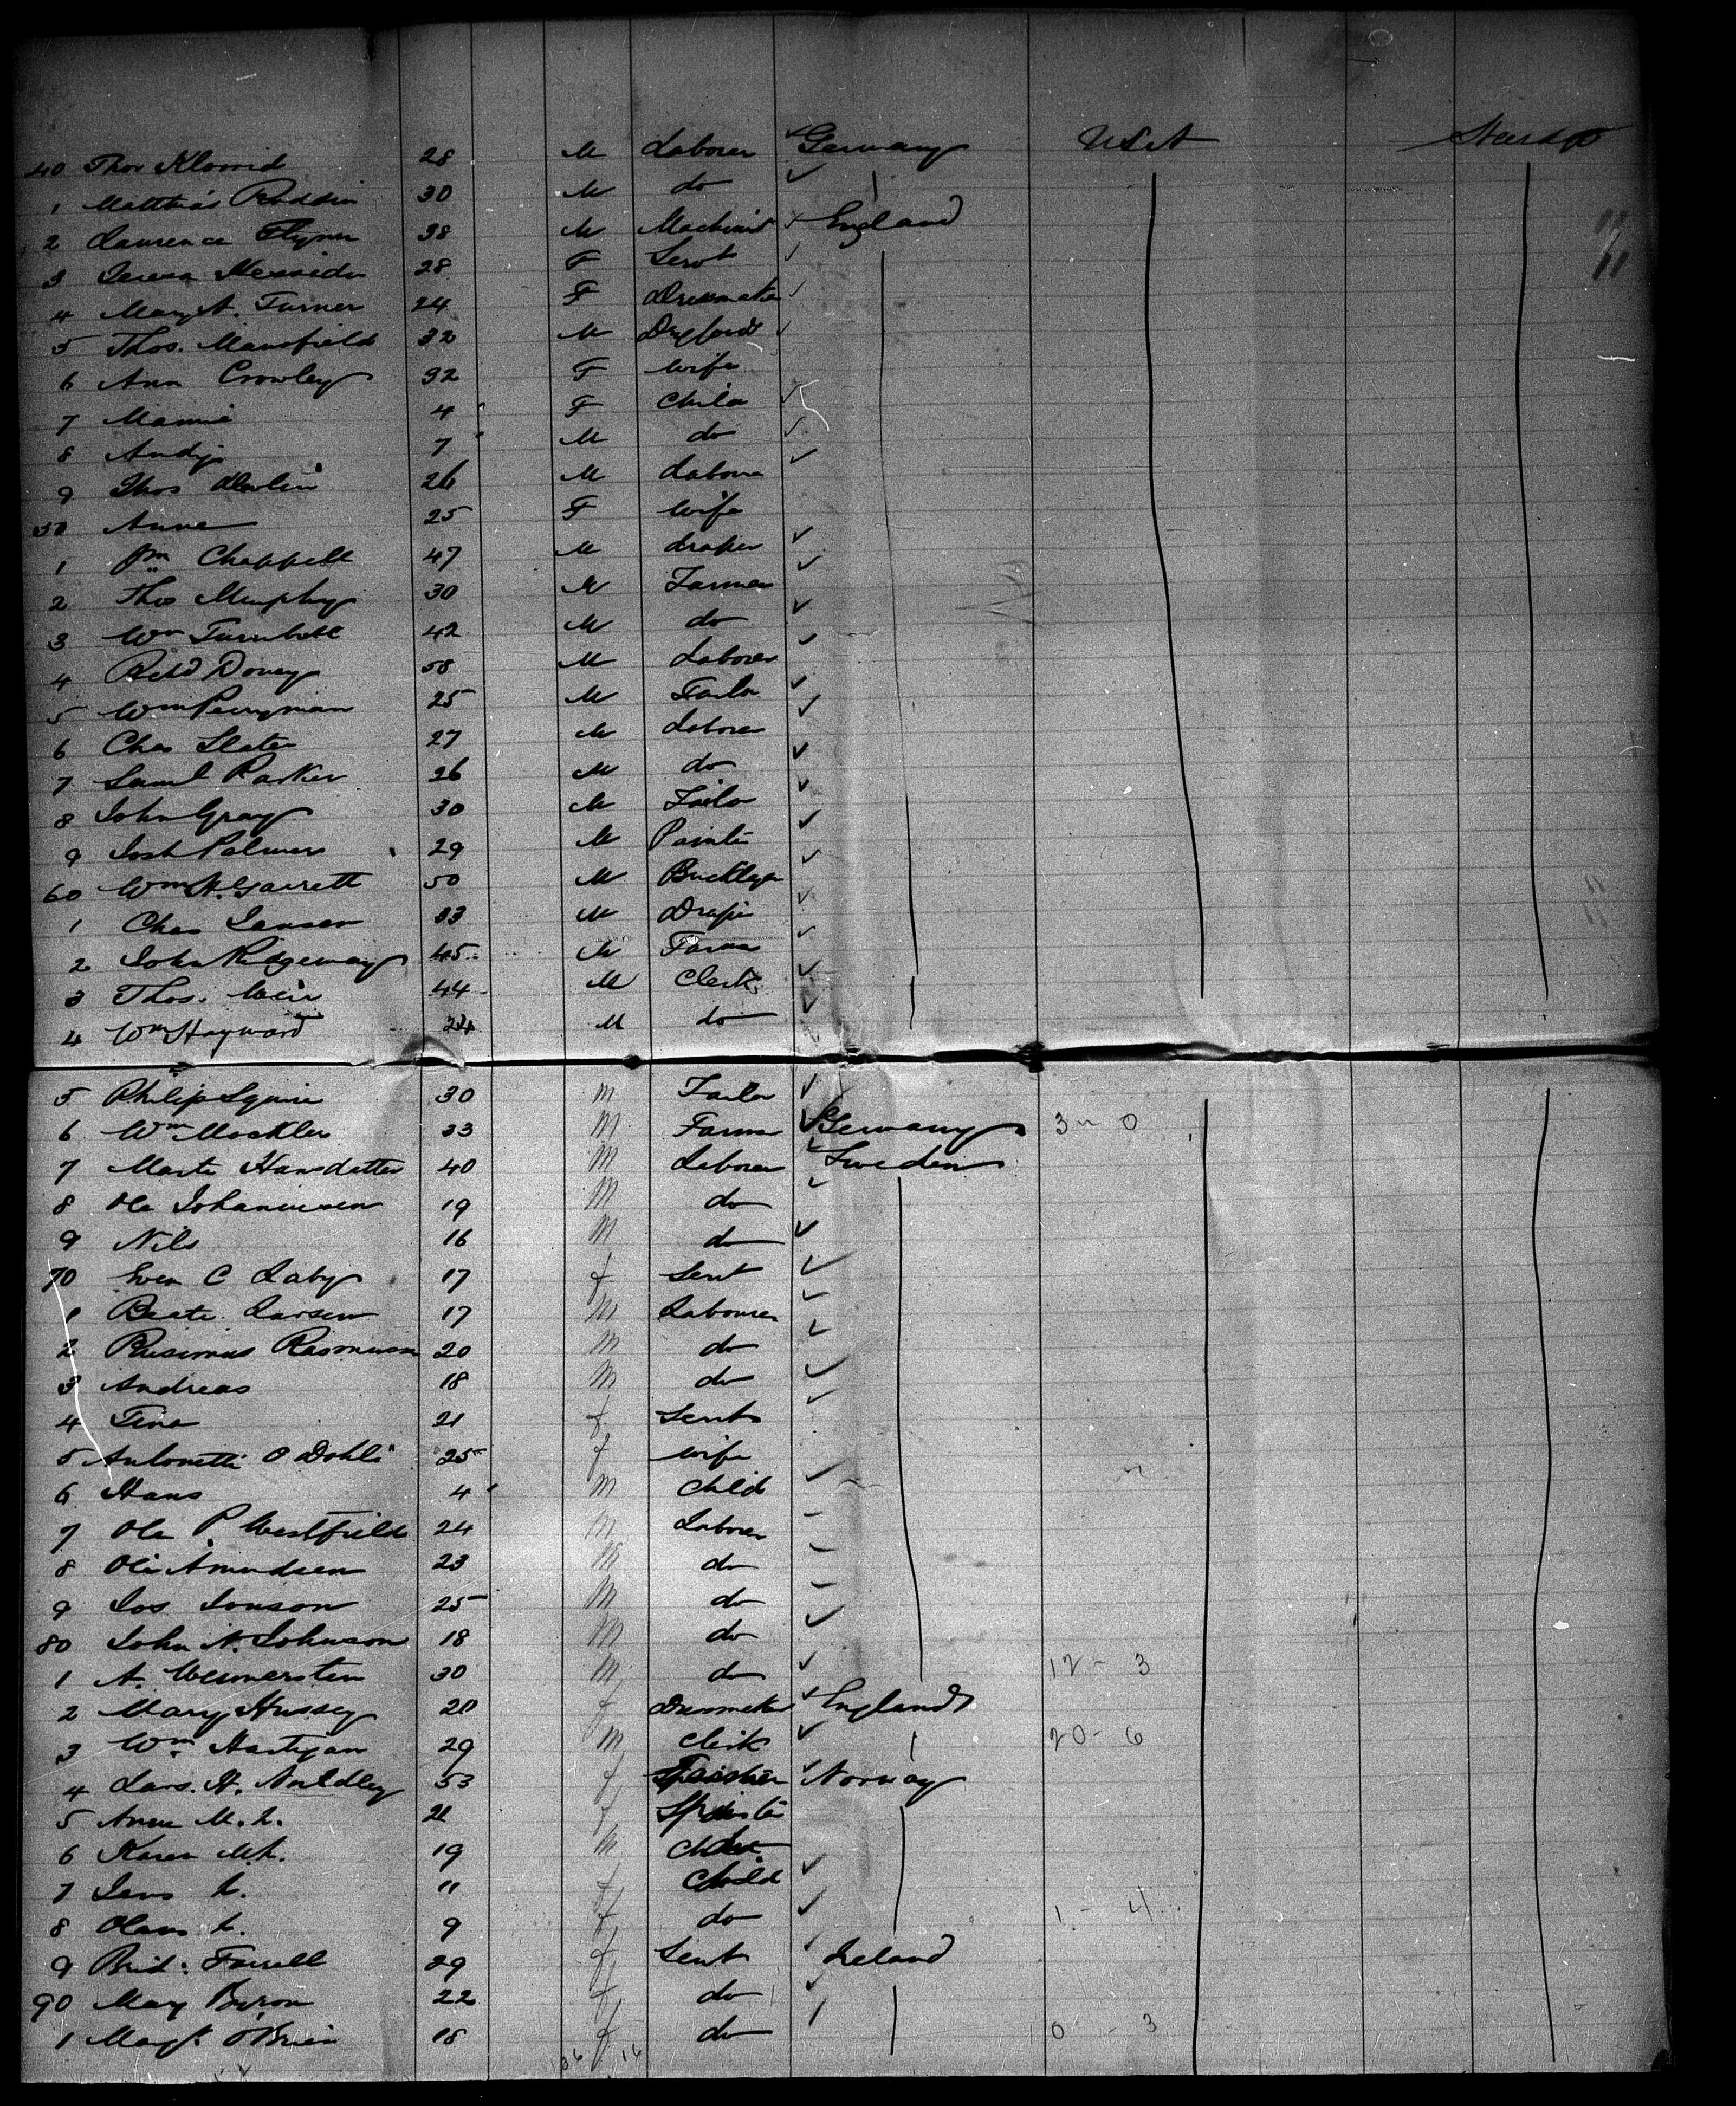 40 Thos 28 M Laborer Germany U S A
1 Matthias 30 M do
2 Laurence 38 M Machinist England
3 28 F Servt
4 Mary A. Turner 24 F Dressmaker
5 Thos. Mansfield 32 M
6 Ann Crowley 32 F Wife
7 Mamie 4 F Child
8 Andy 7 M do
9 Thos Devlin 26 M Laborer
50 Anne 25 F Wife
1 Wm Chappell 47 M draper
2 Thos Murphy 30 M Farmer
3 Wm Turnbull 42 M do
4 Richd Dovey 58 M Laborer
5 Wm Perryman 25 M Tailor
6 Chas Slater 27 M Laborer
7 Saml Parker 26 M do
8 John Gray 30 M Tailor
9 Josh Palmer 29 M Painter
60 Wm H. Garrett 50 M Bricklayer
1 Chas Jensen 33 M Draper
2 John Ridgeway 45 M Farmer
3 Thos. Weir 44 M Clerk
4 Wm Hayward 24 M do
5 Philip Squire 30 M Tailor
6 Wm Mockler 33 M Farmer Germany 3 - 0
7 Marte Hansdatter 40 M Laborer Sweden
8 Ole Johannesen 19 M do
9 Nils 16 M do
70 C Laby 17 f Servt
1 Beate Larsen 17 M Labourer
2 Rasmus Rasmussen 20 M do
3 Andreas 18 M do
4 Tine 21 f Servt
5 Antonette O Dahli 25 f wife
6 Hans 4 M Child
7 Ole P. Westfield 24 M Laborer
8 Ole Amundsen 23 M do
9 Jos Jonson 25 M do
80 John N. Johnson 18 M do
1 A. Wennersten 30 M do 12 - 3
2 Mary Hussey 20 f Dressmaker England
3 Wm Hartigan 29 M Clerk 20 - 6
4 Lars. H. 53 f Norway
5 Anne M. L. 21 f Spinster
6 Karen M. L. 19 M
7 Jens L. 11 f Child
8 Olaus L. 9 f do 1 - 4
9 Brid: Farrell 29 f Servt Ireland
90 Mary Byron 22 f do
1 Margt. O'Brien 18 f do 0 - 3
36 16